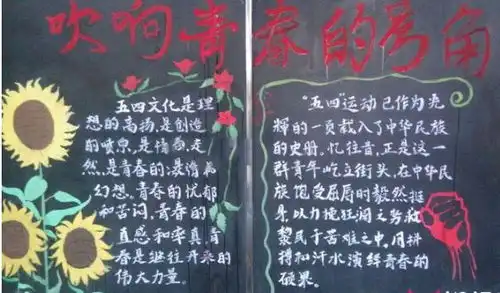 吹响青春的号角
五四文化是理
想的高扬,是创造
的喷泉,是情与是
然,是青春的浪漫与
幻想。青春的忧郁
和苦闷,青春的
直感和率真,青
春是继往开来的
伟大力量。
"五四"运动已作为光
辉的一页载入了中华民族
的史册,忆往昔,正是这一
群青年屹立街头,在中华民
族饱受屈辱时毅然挺
身,以力挽狂澜之势救
黎民于苦难之中,用拼
搏和汗水演绎青春的
硕果。